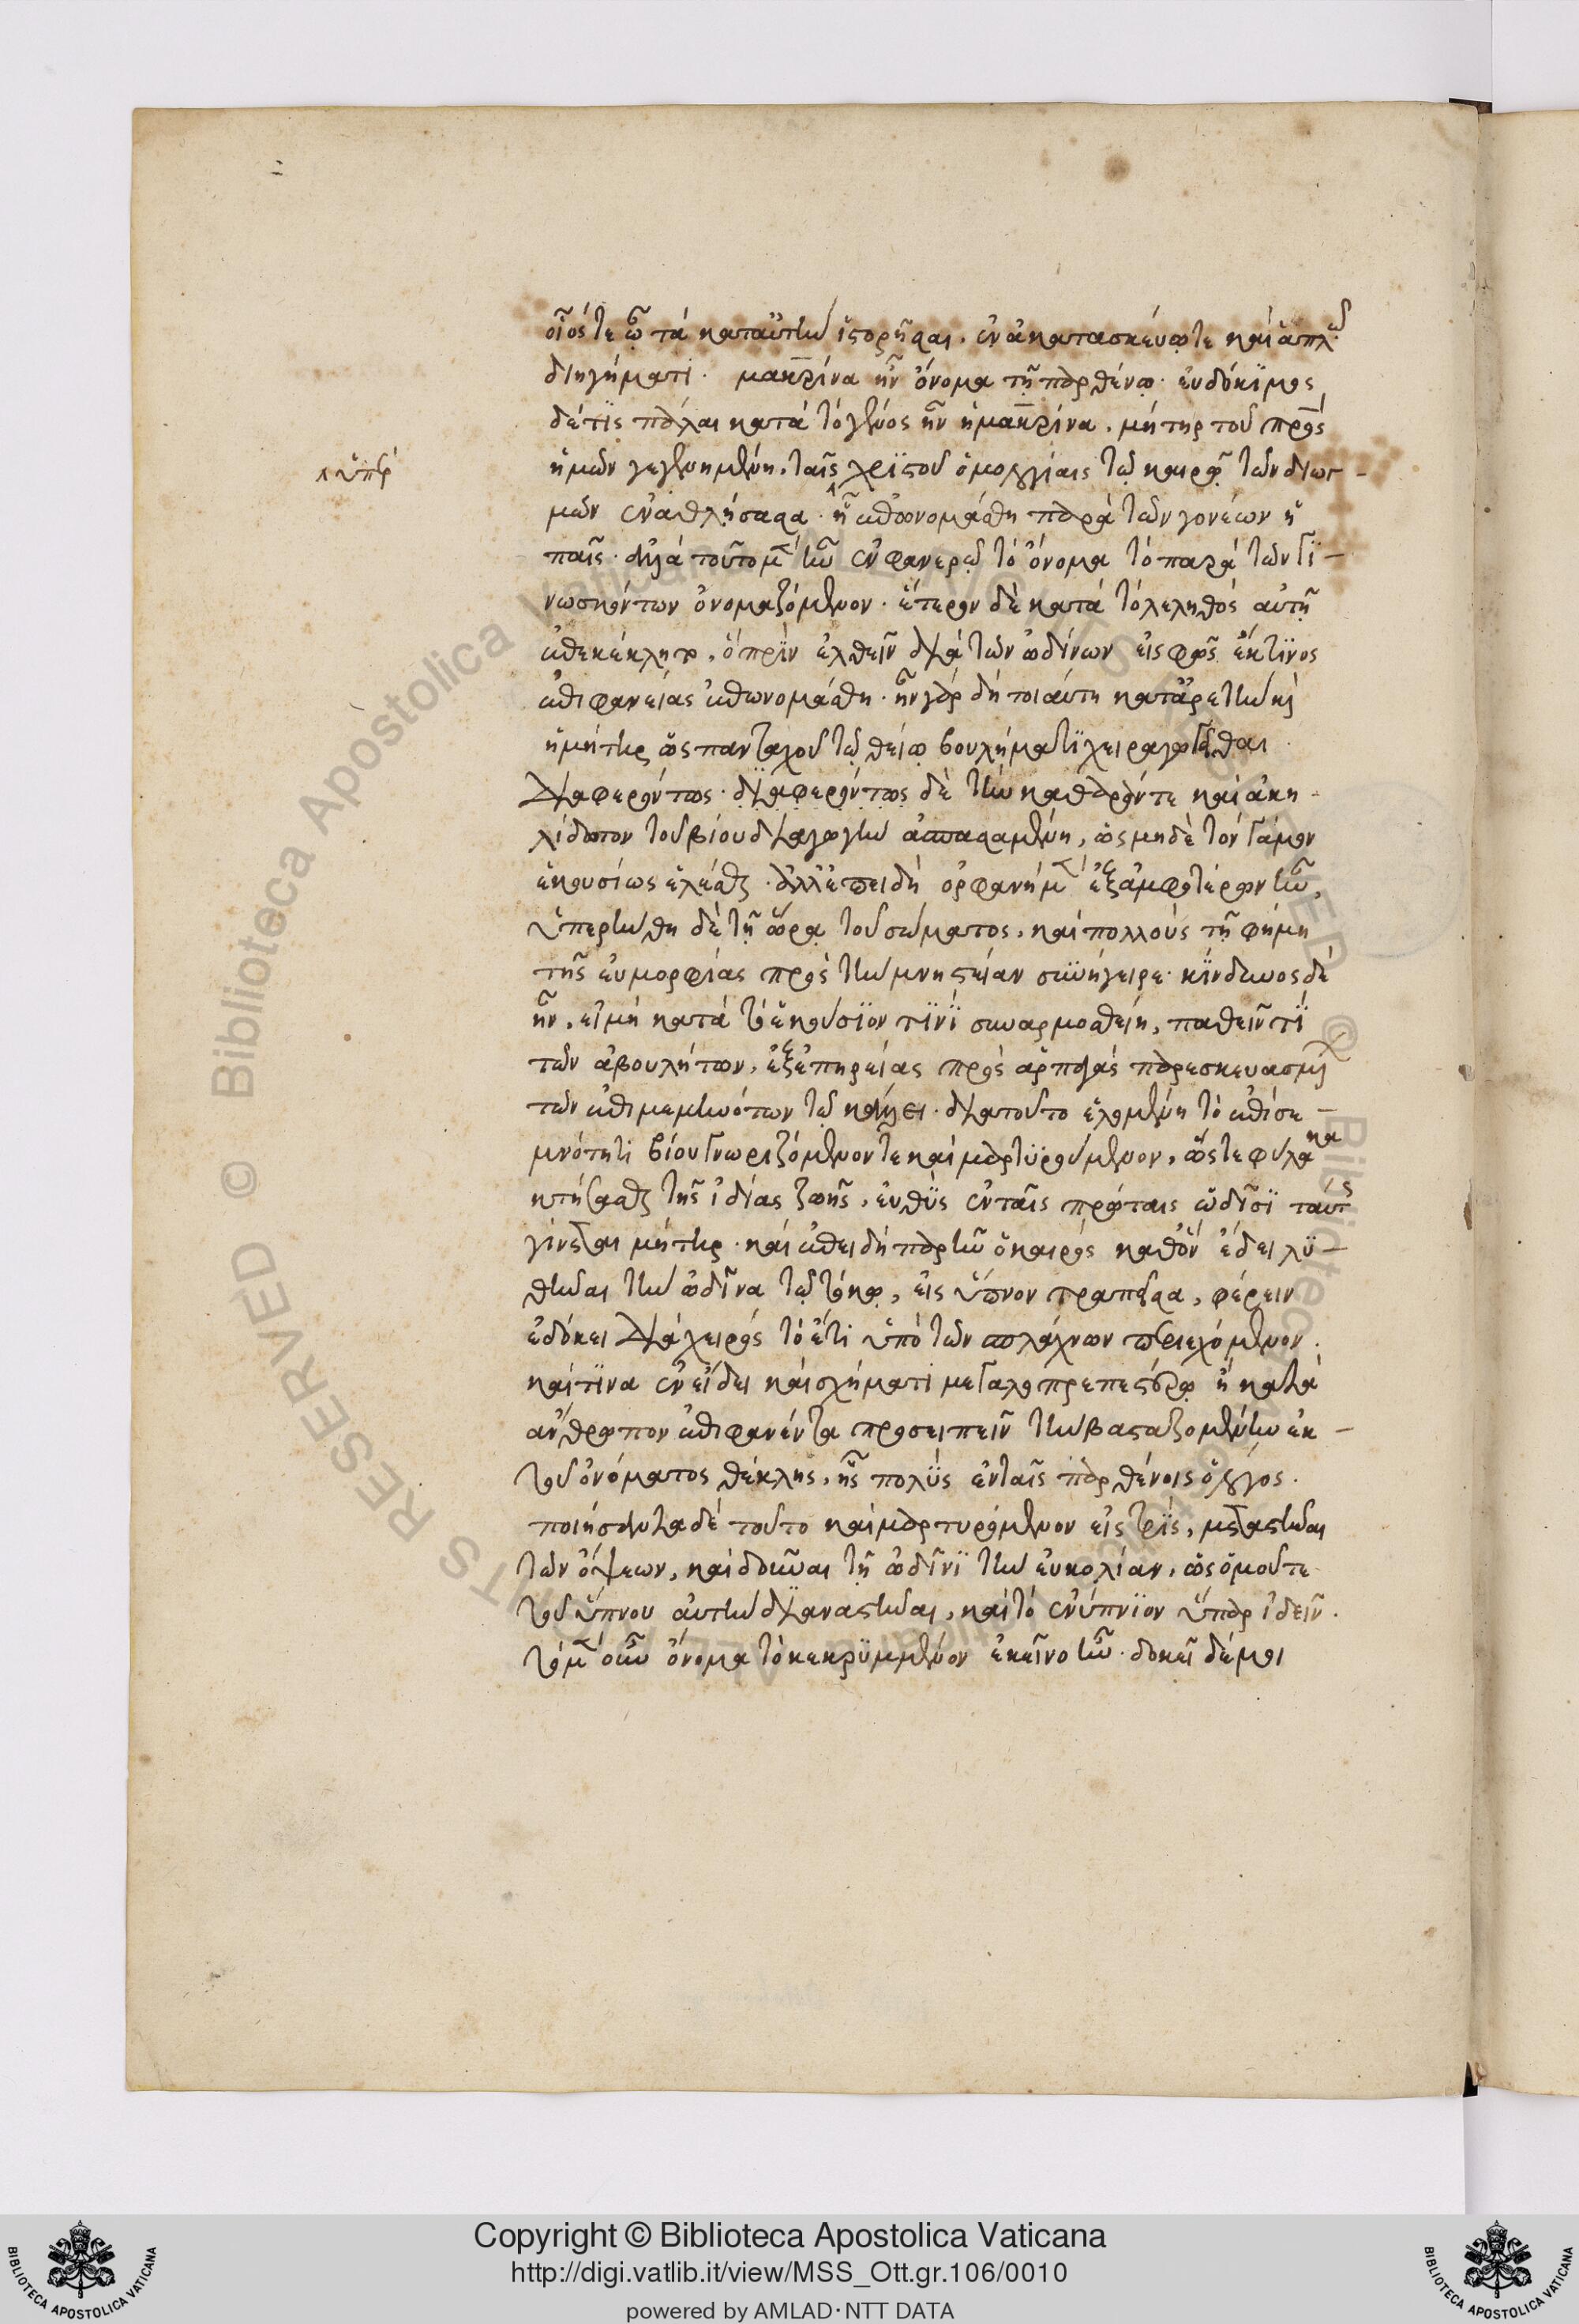 οἷός τε ὦ τὰ κατ' αὐτὴν ἱστορῆσαι. ἐν ἀκατασκεύω τε καὶ ἁπλῶ
διηγήματι. μακρίνα ἦν ὄνομα τῇ παρθένῳ. εὐδόκιμος
δέ τις πάλαι κατὰ τὸ γένος ἦν ἡ μακρίνα. μήτηρ τοῦ πρς
ἡμῶν γεγενημένη. ταῖς χριστοῦ ὁμολογίαις τῷ καιρῷ τῶν διωγ-
ὑπὲρ
μῶν ἐναθλήσασα. ᾗ ἐπωνομάσθη παρὰ τῶν γονέων ἡ
παῖς. ἀλλὰ τοῦτο μὲν ἦν ἐν φανερῷ τὸ ὄνομα τὸ παρὰ τῶν γι-
νωσκόντων ὀνομαζόμενον. ἕτερον δὲ κατὰ τὸ λεληθὸς αὐτῇ
ἐπεκέκλητο. ὃ πρὶν ἐλθεῖν διὰ τῶν ὠδίνων εἰς φῶς ἔκ τινος
ἐπιφανείας ἐπωνομάσθη. ἦν γὰρ δὴ τοιαύτη κατ' ἀρετὴν καὶ
ἡ μήτηρ ὡς πανταχοῦ τῷ θείῳ βουλήματι χειραγωγεῖσθαι.
διαφερόντως. διαφερόντως δὲ τὴν καθαράν τε καὶ ἀκη-
λίδωτον τοῦ βίου διαγωγὴν ἀσπασαμένη, ὡς μηδὲ τὸν γάμον
ἑκουσίως ἑλέσθαι. ἀλλ' ἐπειδὴ ὀρφανὴ μὲν ἐξ ἀμφοτέρων ἦν,
ὑπερήνθη δὲ τῇ ὥρᾳ τοῦ σώματος. καὶ πολλοὺς τῇ φήμη
τῆς εὐμορφίας πρὸς τὴν μνηστείαν συνήγειρε. κίνδυνος δὲ
ἦν. εἰ μὴ κατὰ τὸ ἑκούσιόν τινι συναρμοσθείη, παθεῖν τι
τῶν ἀβουλήτων. ἐξ ἐπηρείας πρὸς ἁρπαγὰς παρεσκευασμένων
τῶν ἐπιμεμηνότων τῷ κάλλει. διὰ τοῦτο ἑλομένη τὸ ἐπὶ σε-
μνότητι βίου γνωριζόμενόν τε καὶ μαρτυρούμενον, ὥστε φύλακα
κτήσασθαι τῆς ἰδίας ζωῆς. εὐθὺς ἐν ταῖς πρώταις ὠδῖσι ταύτης
γίνεται μήτηρ. καὶ ἐπειδὴ παρῆν ὁ καιρὸς καθ' ὃν ἔδει λυ-
θῆναι τὴν ὠδῖνα τῷ τόκῳ, εἰς ὕπνον τραπεῖσα, φέρειν
ἐδόκει διὰ χειρὸς τὸ ἔτι ὑπὸ τῶν σπλάχνων περιεχόμενον.
καί τινα ἐν εἴδει καὶ σχήματι μεγαλοπρεπεστέρῳ ἢ κατὰ
ἄνθρωπον ἐπιφανέντα προσειπεῖν τὴν βασταζομένην ἐκ
τοῦ ὀνόματος θέκλης, ἧς πολὺς ἐν ταῖς παρθένοις ὁ λόγος.
ποιήσαντα δὲ τοῦτο καὶ μαρτυρόμενον εἰς τρίς, μεταστῆναι
τῶν ὄψεων, καὶ δοῦναι τῇ ὠδῖνι τὴν εὐκολίαν, ὡς ὁμοῦ τε
τοῦ ὕπνου αὐτὴν διαναστῆναι, καὶ τὸ ἐνύπνιον ὕπαρ ἰδεῖν.
τὸ μὲν οὖν ὄνομα τὸ κεκρυμμένον ἐκεῖνο ἦν. δοκεῖ δέ μοι
Copyright © Biblioteca Apostolica Vaticana
http://digi.vatlib.it/view/MSS_Ott.gr.106/0010
powered by AMLAD·NTT DATA